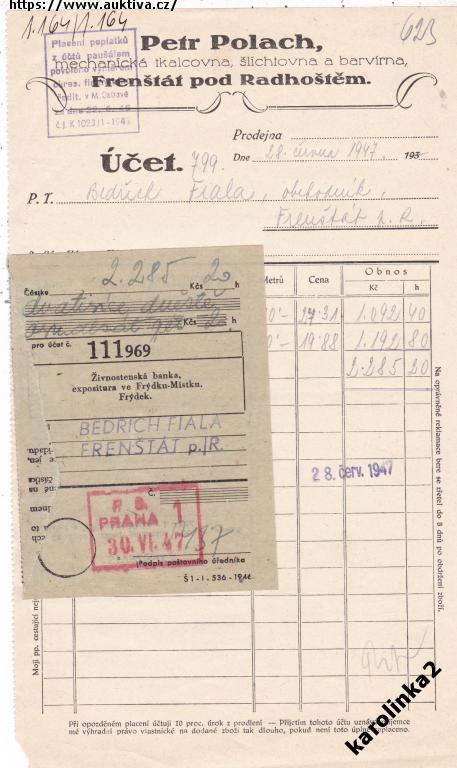 https://www.auktiva.cz/
1.164/1.164
623
Placení poplatků
z účtů paušálem
povoleno výměrem
okres. finan.
ředit. v M. Ostravě
ze dne 22. 6. 45
č.j. K 1023/I-1945
Petr Polach,
mechanická tkalcovna, šlichtovna a barvírna,
Frenštát pod Radhoštěm.
Prodejna
Účet. 799.
Dne 28. června 1947. 193
P. T. Bedřich Fiala, obchodník,
Frenštát p. R.
Metrů Cena Obnos
Kč h
27·31 1.092 40
19·88 1.192 80
2.285 20
28. červ. 1947
2.285 20
Částka Kčs h
pro účet č.
111969
Živnostenská banka,
expositura ve Frýdku-Místku.
Frýdek.
BEDŘICH FIALA
FRENŠTÁT p./R.
Č.
P. S. 1
PRAHA
30. VI. 47
7137
Podpis poštovního úředníka
Š 1-I. 536-1946
Na oprávněné reklamace bere se zřetel do 8 dnů po obdržení zboží.
Moji pp. cestující nej
Při opozděném placení účtuji 10 proc. úrok z prodlení — Přijetím tohoto účtu uznáv
mé výhradní právo vlastnické na dodané zboží tak dlouho, pokud není toto úplně zaplaceno.
karolinka2